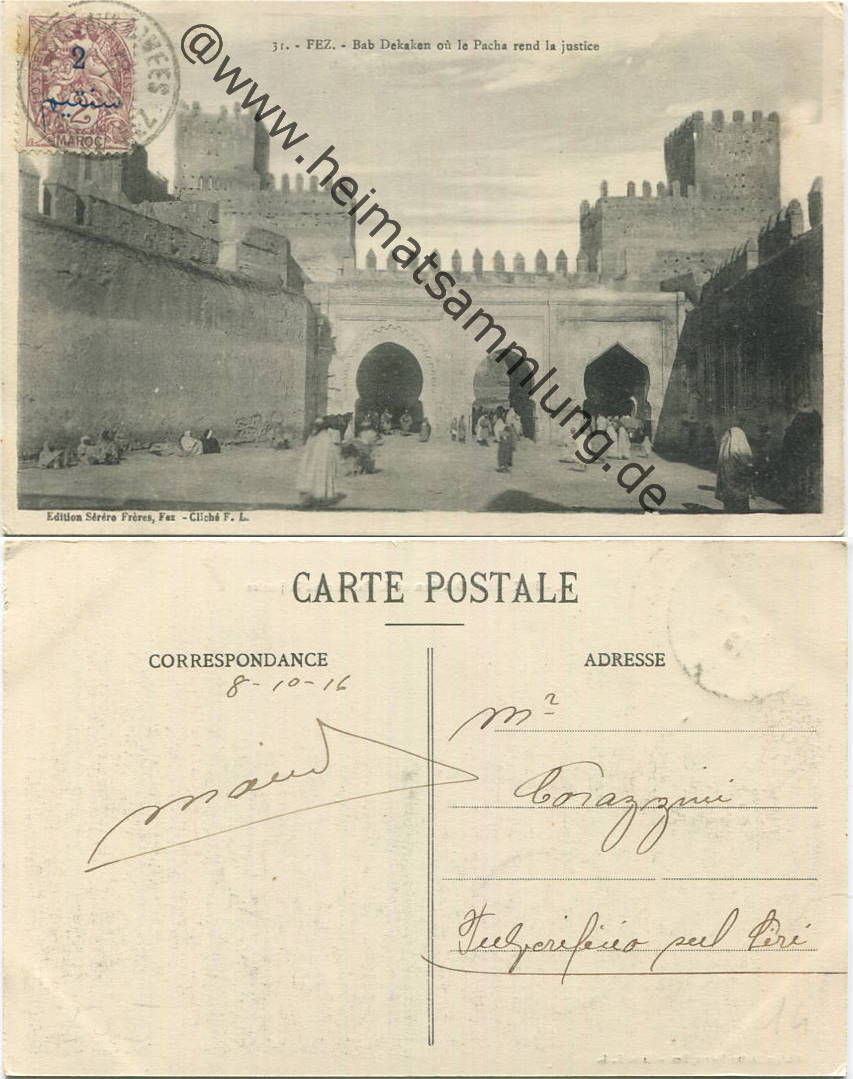 31. - FEZ. - Bab Dekaken où le Pacha rend la justice
2
سنتيم
2
MAROC
@www.heimatsammlung.de
Edition Séréro Frères, Fez - Cliché F. L.
CARTE POSTALE
CORRESPONDANCE
8-10-16
ADRESSE
Mr
Corazzini
sul
14